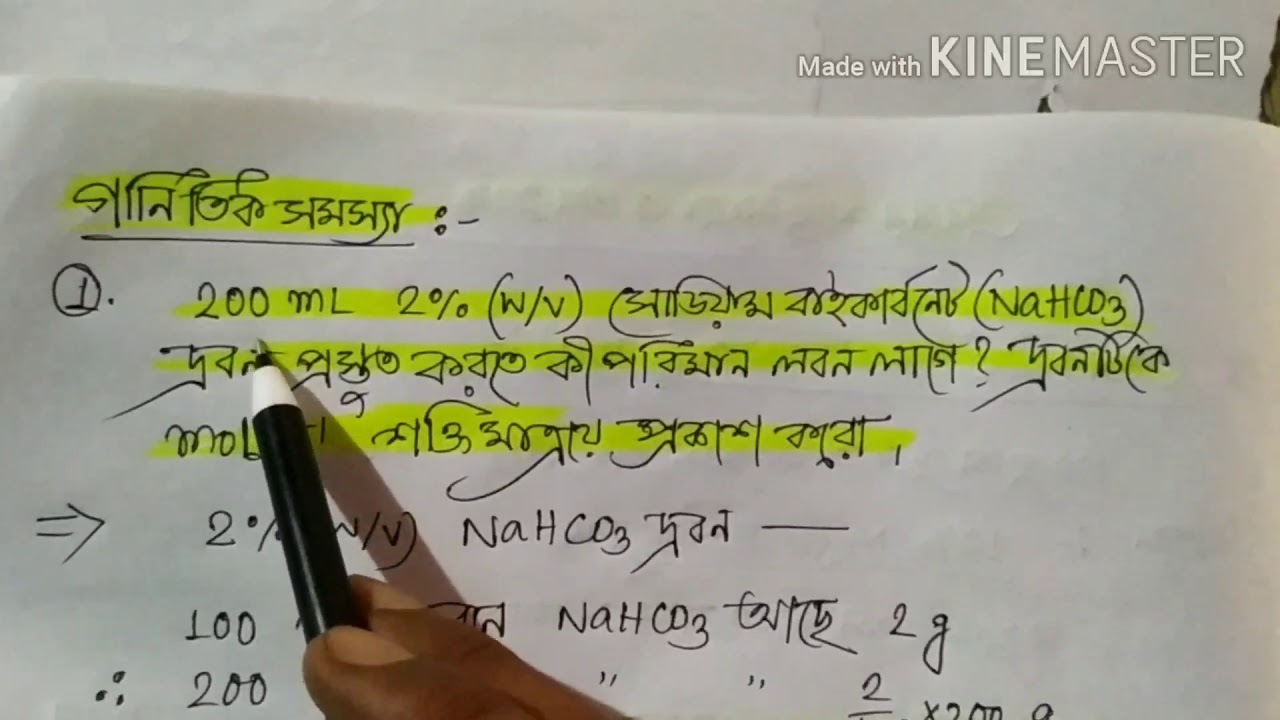 Made with KINEMASTER
গানিতিক সমস্যা :-
1. 200 mL 2% (W/V) সোডিয়াম বাইকার্বনেট (NaHCO3)
দ্রবন প্রস্তুত করতে কী পরিমান লবন লাগে? দ্রবনটিকে
শক্তিমাত্রায় প্রকাশ করো।
⇒ 2% W/V) NaHCO3 দ্রবন —
100 NaHCO3 আছে 2 g
∴ 200 " " 2 ×200 g